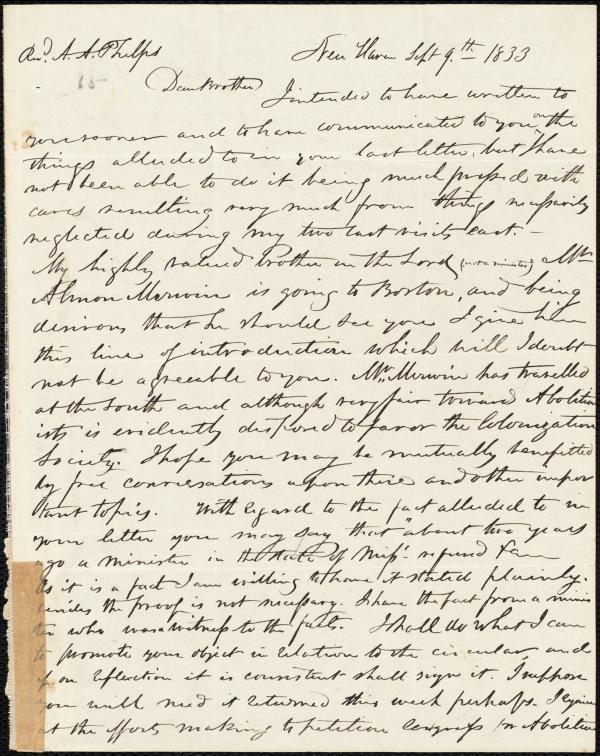 Revd. A. A. Phelps New Haven Sept 9.th 1833
15
Dear Brother I intended to have written to
you sooner and to have communicated to you on the
things alluded to in your last letter, but I have
not been able to do it being much pressed with
cares resulting very much from things necessarily
neglected during my two last visits east. —
My highly valued brother in the Lord (not a minister) Mr.
Almon Merwin is going to Boston, and being
desirous that he should see you I give him
this line of introduction which will I doubt
not be agreeable to you. Mr. Merwin has travelled
at the South and although very fair toward Abolition
ists is evidently disposed to favor the Colonization
Society. I hope you may be mutually benefitted
by free conversations upon these and other impor
tant topics. With regard to the fact alluded to in
your letter you may say that "about two years
ago a minister in the State of Missi. refused
As it is a fact I am willing to have it stated plainly.
besides the proof is not necessary. I have the fact from a minis
ter who was a witness to the facts. I shall do what I can
to promote your object in relation to the circular, and
if on reflection it is consistent shall sign it. I suppose
you will need it returned this week perhaps. I rejoice
at the efforts making to petition Congress for Abolition